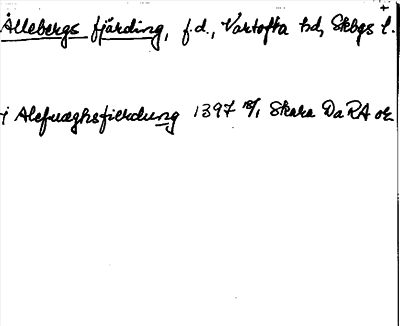 Ållebergs fjärding, f.d., Vartofta hd, Skbgs l.
i Alefuæghsfierdung 1397 18/1 Skara DaRA or.